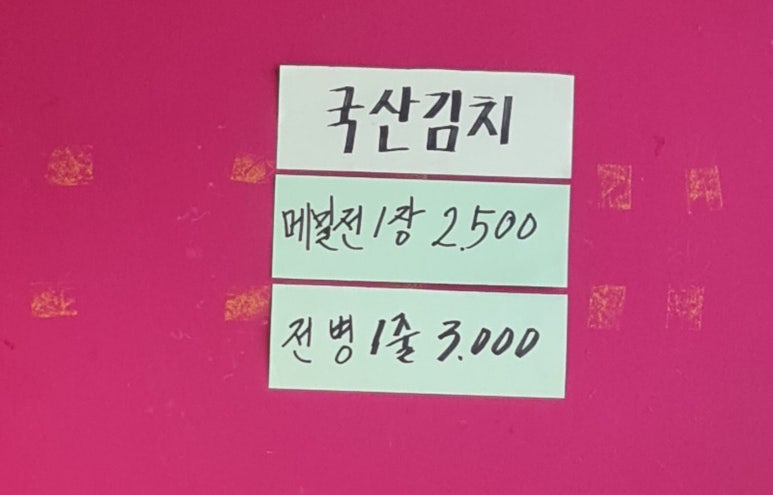 국산김치
메밀전 1장 2.500
전병 1줄 3.000